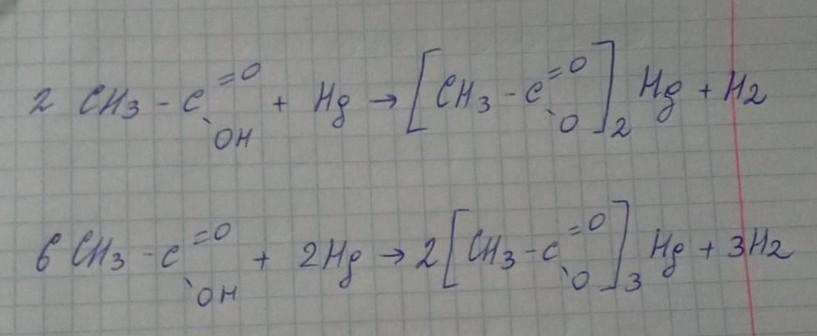 2 CH3 - C =O OH + Hg → [CH3 - C =O O]2 Hg + H2
6 CH3 - C =O OH + 2Hg → 2[CH3 - C =O O]3 Hg + 3H2